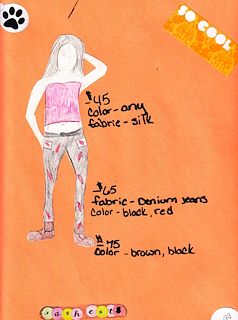 SO COOL
$45
color - any
fabric - silk
$65
fabric - Denium jeans
color - black, red
$75
color - brown, black